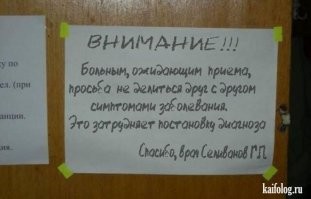 ВНИМАНИЕ!!!
Больным, ожидающим приема,
просьба не делиться друг с другом
симптомами заболевания.
Это затрудняет постановку диагноза
Спасибо, врач Селиванов Г.П.
ку по
ел. (при
анции.
ия.
kaifolog.ru